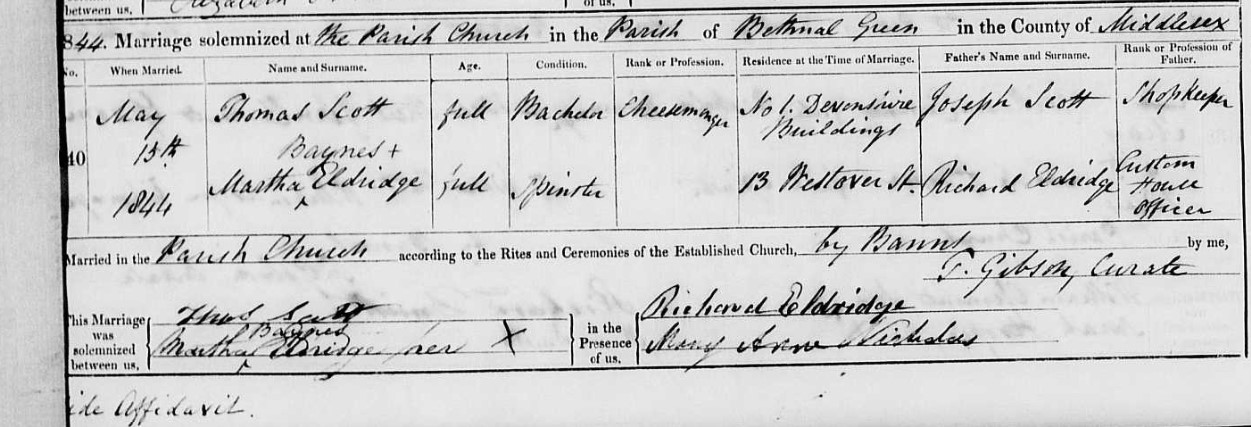 between us,
of us.
844. Marriage solemnized at the Parish Church in the Parish of Bethnal Green in the County of Middlesex
No. When Married. Name and Surname. Age. Condition. Rank or Profession. Residence at the Time of Marriage. Father's Name and Surname. Rank or Profession of Father.
40 May 15th 1844
Thomas Scott full Bachelor Cheesemonger No 1. Devonshire Buildings Joseph Scott Shopkeeper
Baynes +
Martha ^ Eldridge full Spinster 13 Westover St. Richard Eldridge Custom House Officer
Married in the Parish Church according to the Rites and Ceremonies of the Established Church, by Banns by me,
T. Gibson, Curate
This Marriage was solemnized between us,
Thos Scott
Baynes
Martha ^ Eldridge her X
in the Presence of us.
Richard Eldridge
Mary Anne Nicholas
ide Affidavit.